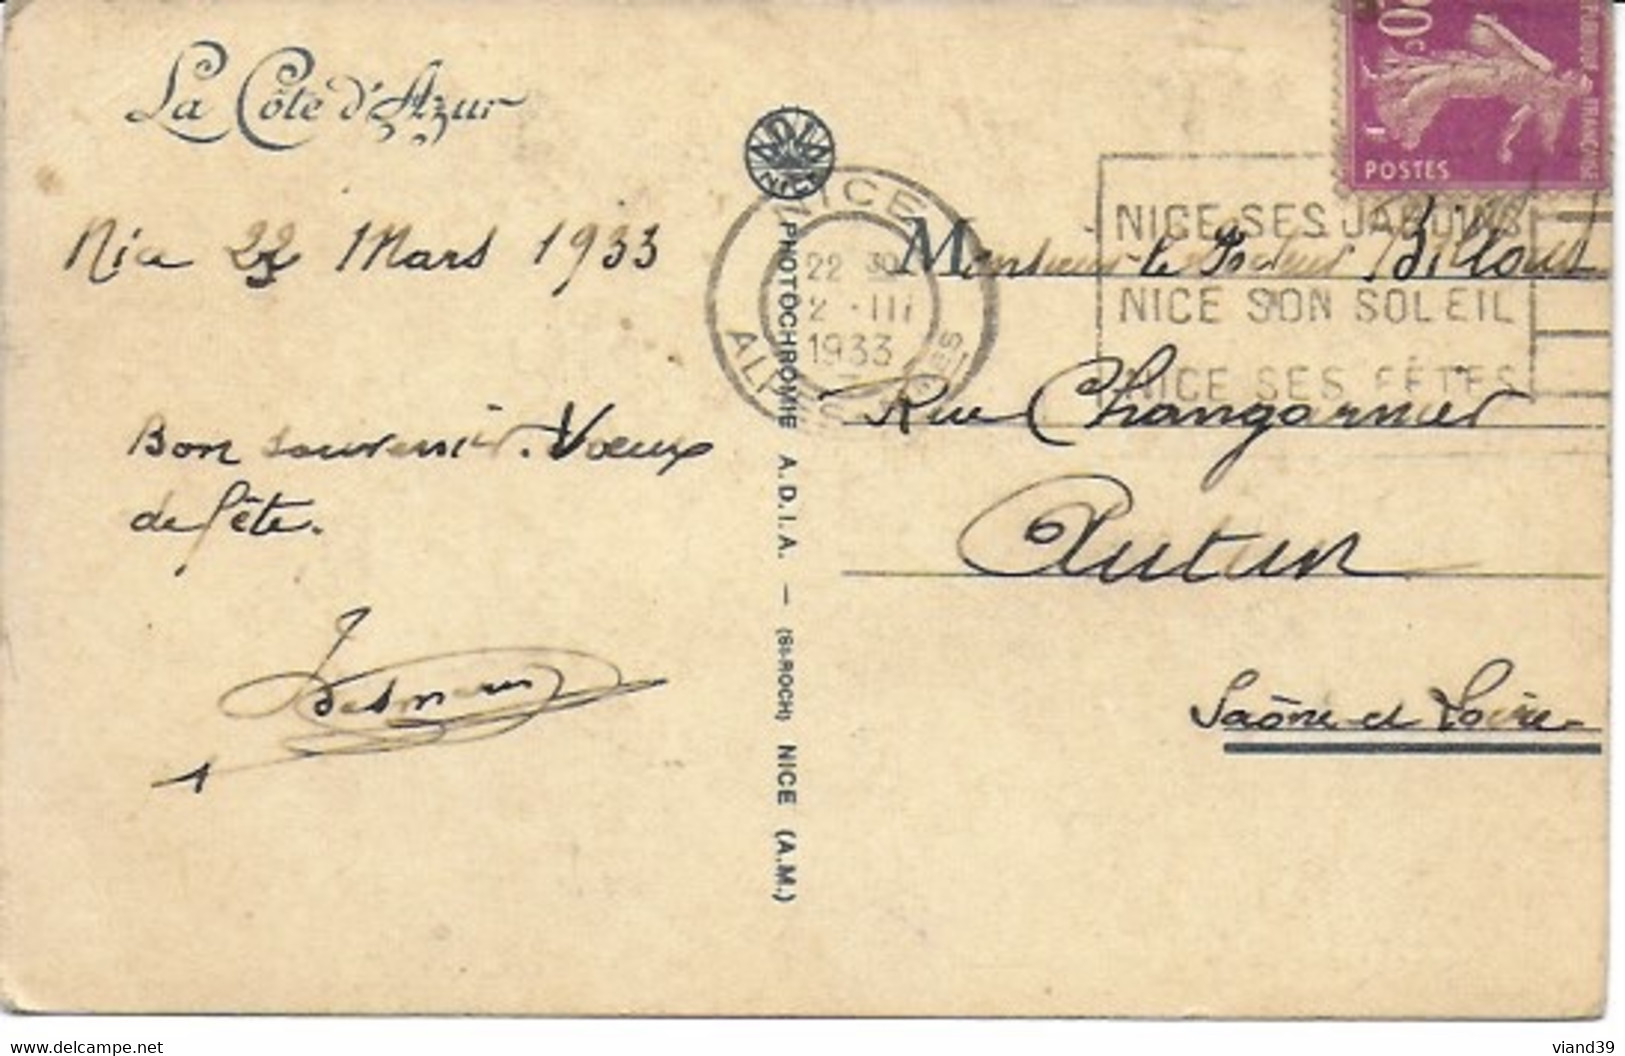 La Côte d'Azur
Nice 22 Mars 1933
Bon souvenir. Voeux
de fête.
ADIA
NICE
PHOTOCHROMIE A.D.I.A. — (St-ROCH) NICE (A.M.)
NICE
22 30
2 · III
1933
ALPES
POSTES
NICE SES JARDINS
NICE SON SOLEIL
NICE SES FÊTES
Monsieur le Docteur Billout
Rue Changarnier
Autun
Saône et Loire
viand39